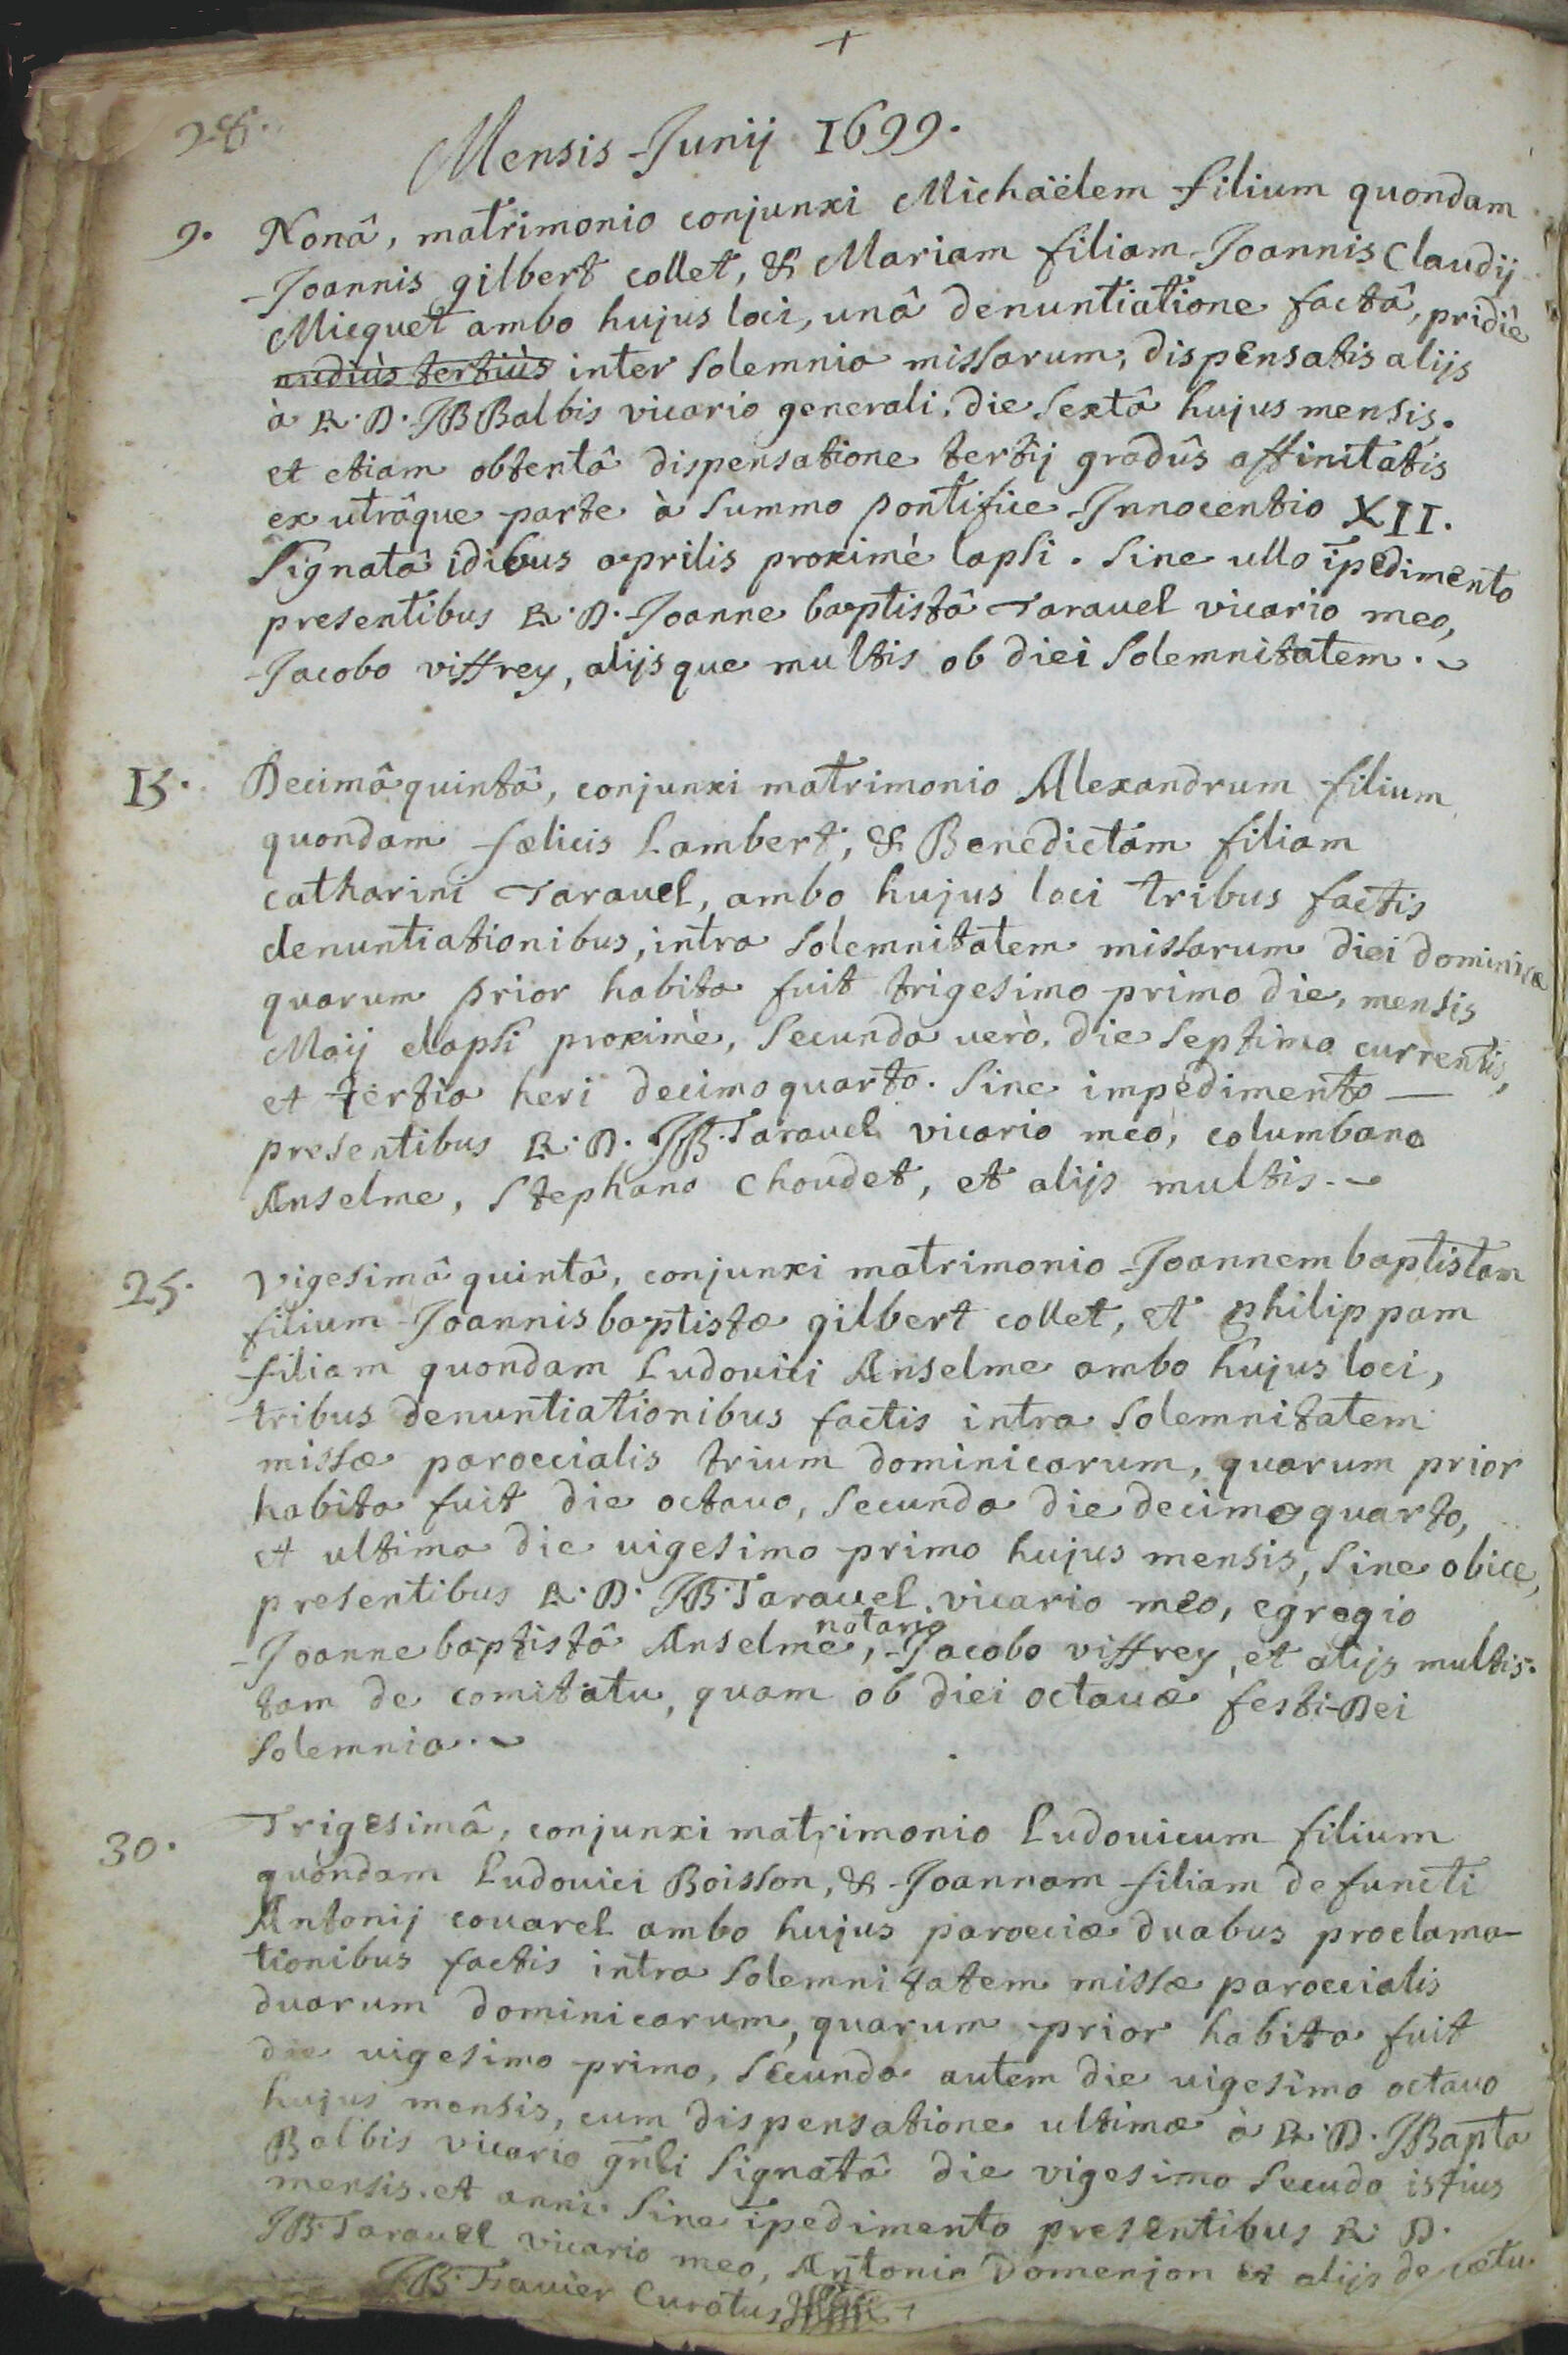 +
28.
Mensis Junij 1699.
9. Nonâ, matrimonio conjunxi Michaëlem filium quondam
Joannis gilbert collet, & Mariam filiam Joannis Claudij
Micquet ambo hujus loci, unâ denuntiatione factâ, pridiè
nudiùs tertiùs inter solemnia missarum, dispensatis alijs
à R. D. JB Balbis vicario generali, die sextâ hujus mensis.
et etiam obtentâ dispensatione tertij gradûs affinitatis
ex utrâque parte à summo pontifice Innocentio XII.
signatâ idibus aprilis proximè lapsi. sine ullo īpedimento
presentibus R. D. Joanne baptistâ Tarauel vicario meo,
Jacobo viffrey, alijsque multis ob diei solemnitatem.
15. Decimâ quintâ, conjunxi matrimonio Alexandrum filium
quondam fœlicis Lambert, & Benedictam filiam
catharini Tarauel, ambo hujus loci tribus factis
denuntiationibus, intra solemnitatem missarum diei dominicæ
quarum prior habita fuit trigesimo primo die, mensis
Maij elapsi proximè, secunda uerò, die septima currentis,
et tertia heri decimo quarto. sine impedimento —
presentibus R. D. JB. Tarauel vicario meo, columbano
Anselme, Stephano Choudet, et alijs multis.
25. Vigesimâ quintâ, conjunxi matrimonio Joannem baptistam
filium Joannis baptistæ gilbert collet, et philippam
filiam quondam Ludouici Anselme ambo hujus loci,
tribus denuntiationibus factis intra solemnitatem
missæ paroccialis trium dominicarum, quarum prior
habita fuit die octauo, secunda die decimo quarto,
et ultima die uigesimo primo hujus mensis, sine obice,
presentibus R. D. JB. Tarauel vicario meo, egregio
Joanne baptistâ Anselme notario, Jacobo viffrey, et alijs multis.
tam de comitatu, quam ob diei octauæ festi-Dei
solemnia.
30. Trigesimâ, conjunxi matrimonio Ludouicum filium
quondam Ludouici Boisson, & Joannam filiam defuncti
Antonij couarel ambo hujus parocciæ duabus proclama-
tionibus factis intra solemnitatem missæ paroccialis
duarum dominicarum, quarum prior habita fuit
die uigesimo primo, secunda autem die uigesimo octauo
hujus mensis, cum dispensatione ultimæ à R. D. JBapta
Balbis vicario gn̄li signatâ die vigesimo secudo istius
mensis. et anni. sine īpedimento presentibus R. D.
JB. Tarauel vicario meo, Antonio Domenjon et alijs de cœtu.
JB. Trauier Curatus